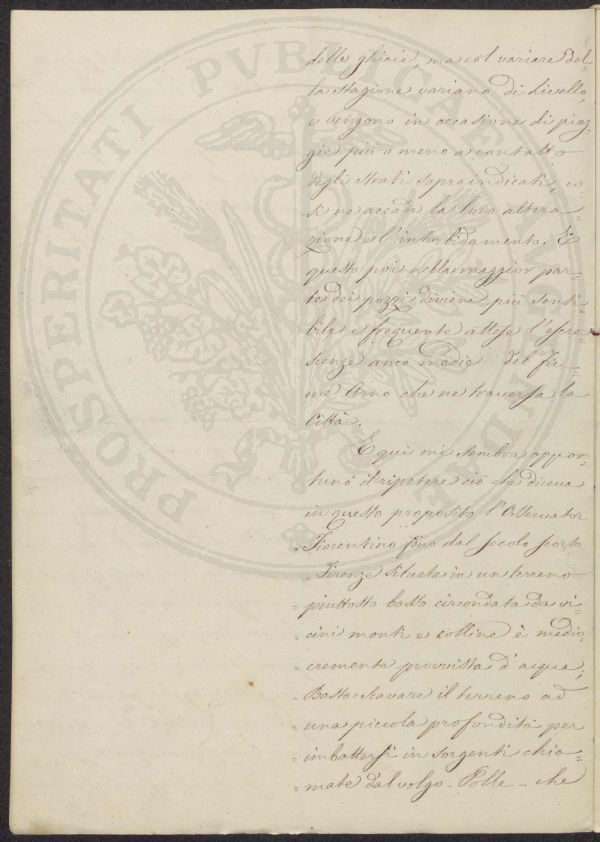 delle ghiaie, ma col variare del=
la stagione variano di livello,
e vengono in occasione di piog=
gie più o meno a contatto
degli strati sopraindicati, co
si ne accade la loro altera=
zione e l'intorbidamento. E
questo poi nella maggior par=
te dei pozzi diviene più sensi=
bile e frequente attese l'escre=
scenze anco medie del Fiu=
me Arno che ne traversa la
Città.
E qui mi sembra oppor=
tuno il ripetere ciò che diceva
in questo proposito l'Osservator
Fiorentino fino dal secolo scorso
= Firenze situata in un terreno
= piuttosto basso circondata da vi=
= cini monti e colline è medio=
= cremente provvista d'acqua;
= Basta scavare il terreno ad
= una piccola profondità per
= imbattersi in sorgenti chia=
= mate dal volgo - Polle - che
PROSPERITATI PVBLICAE AVGENDAE